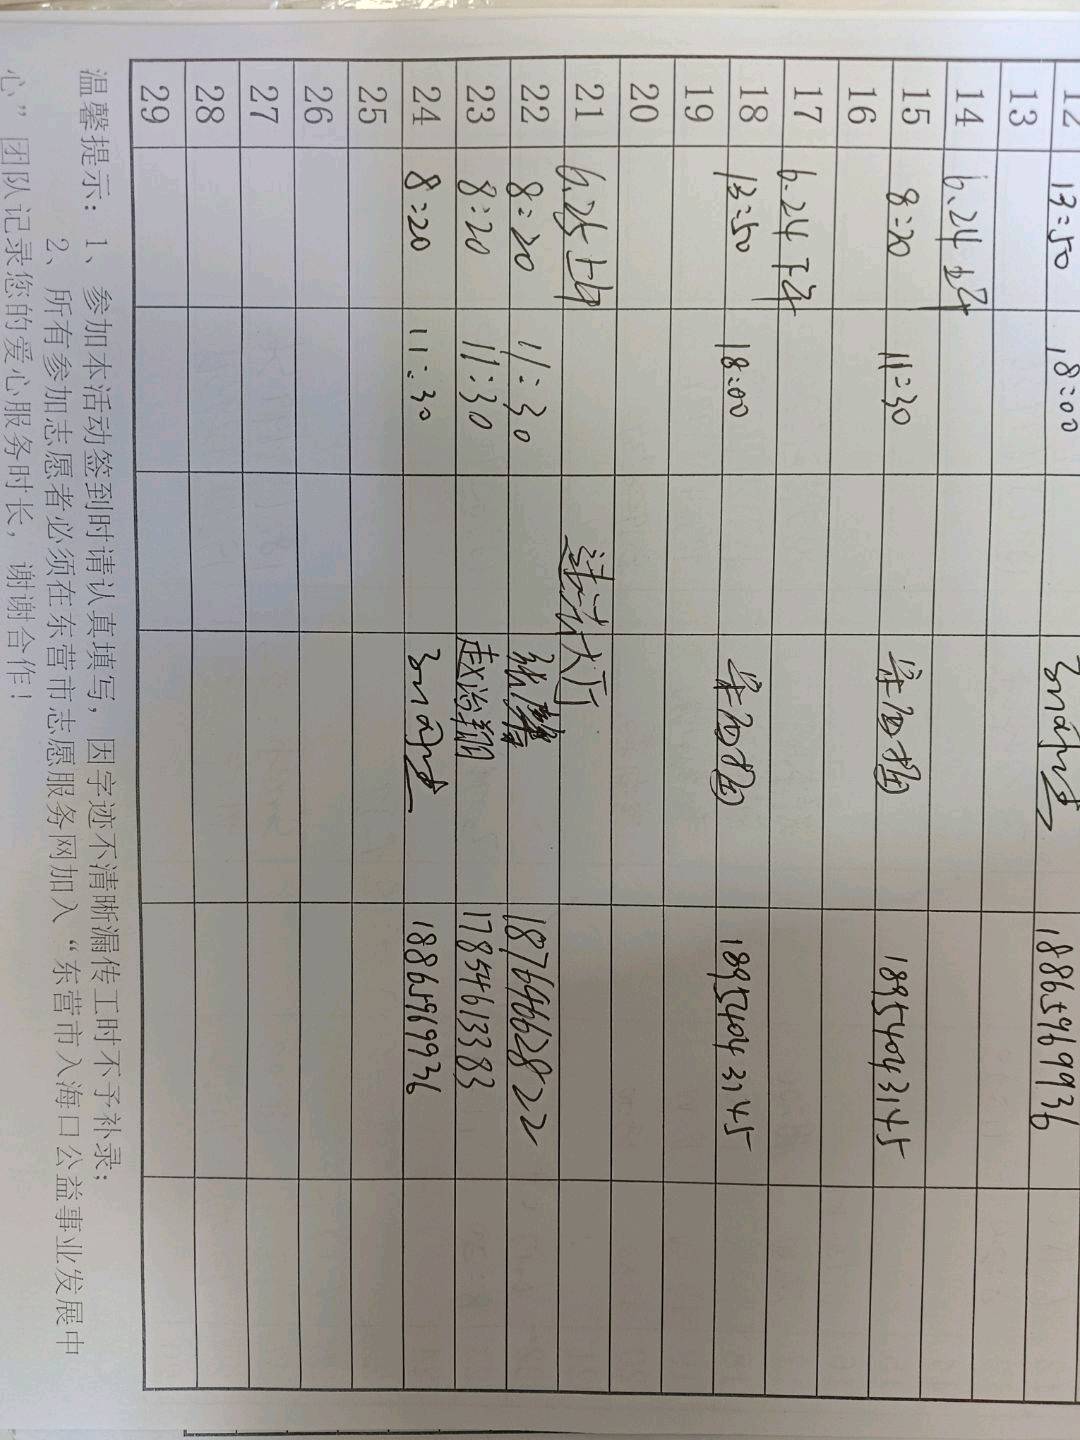 12 13:50 18:00 18865969936
13
14 6.24上午
15 8:20 11:30 18954043145
16
17 6.24下午
18 13:50 18:00 18954043145
19
20
21 6.25上午 大厅
22 8:20 11:30 张馨 18764662822
23 8:20 11:30 赵浴翔 17854613383
24 8:20 11:30 18865969936
25
26
27
28
29
温馨提示: 1、参加本活动签到时请认真填写,因字迹不清晰漏传工时不予补录;
2、所有参加志愿者必须在东营市志愿服务网加入“东营市入海口公益事业发展中
心”团队记录您的爱心服务时长,谢谢合作!